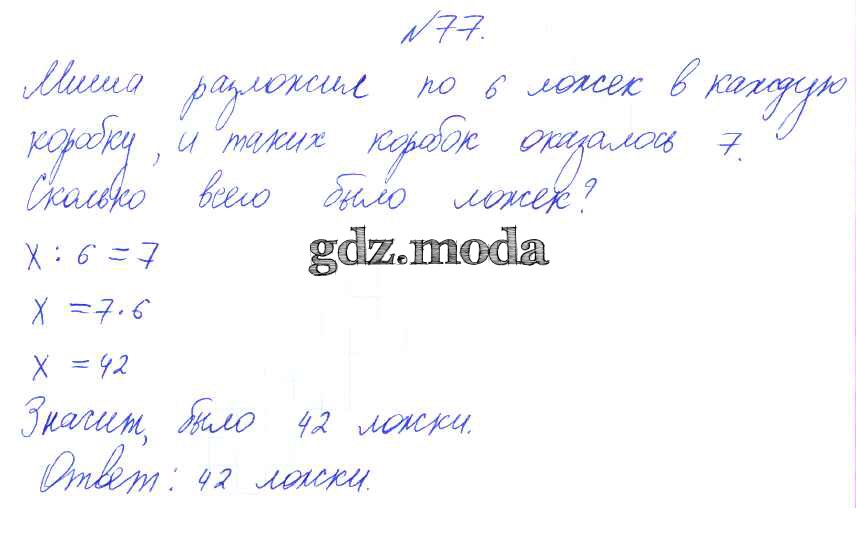 №77.
Миша разложил по 6 ложек в каждую
коробку, и таких коробок оказалось 7.
Сколько всего было ложек?
x : 6 = 7
gdz.moda
x = 7·6
x = 42
Значит, было 42 ложки.
Ответ: 42 ложки.